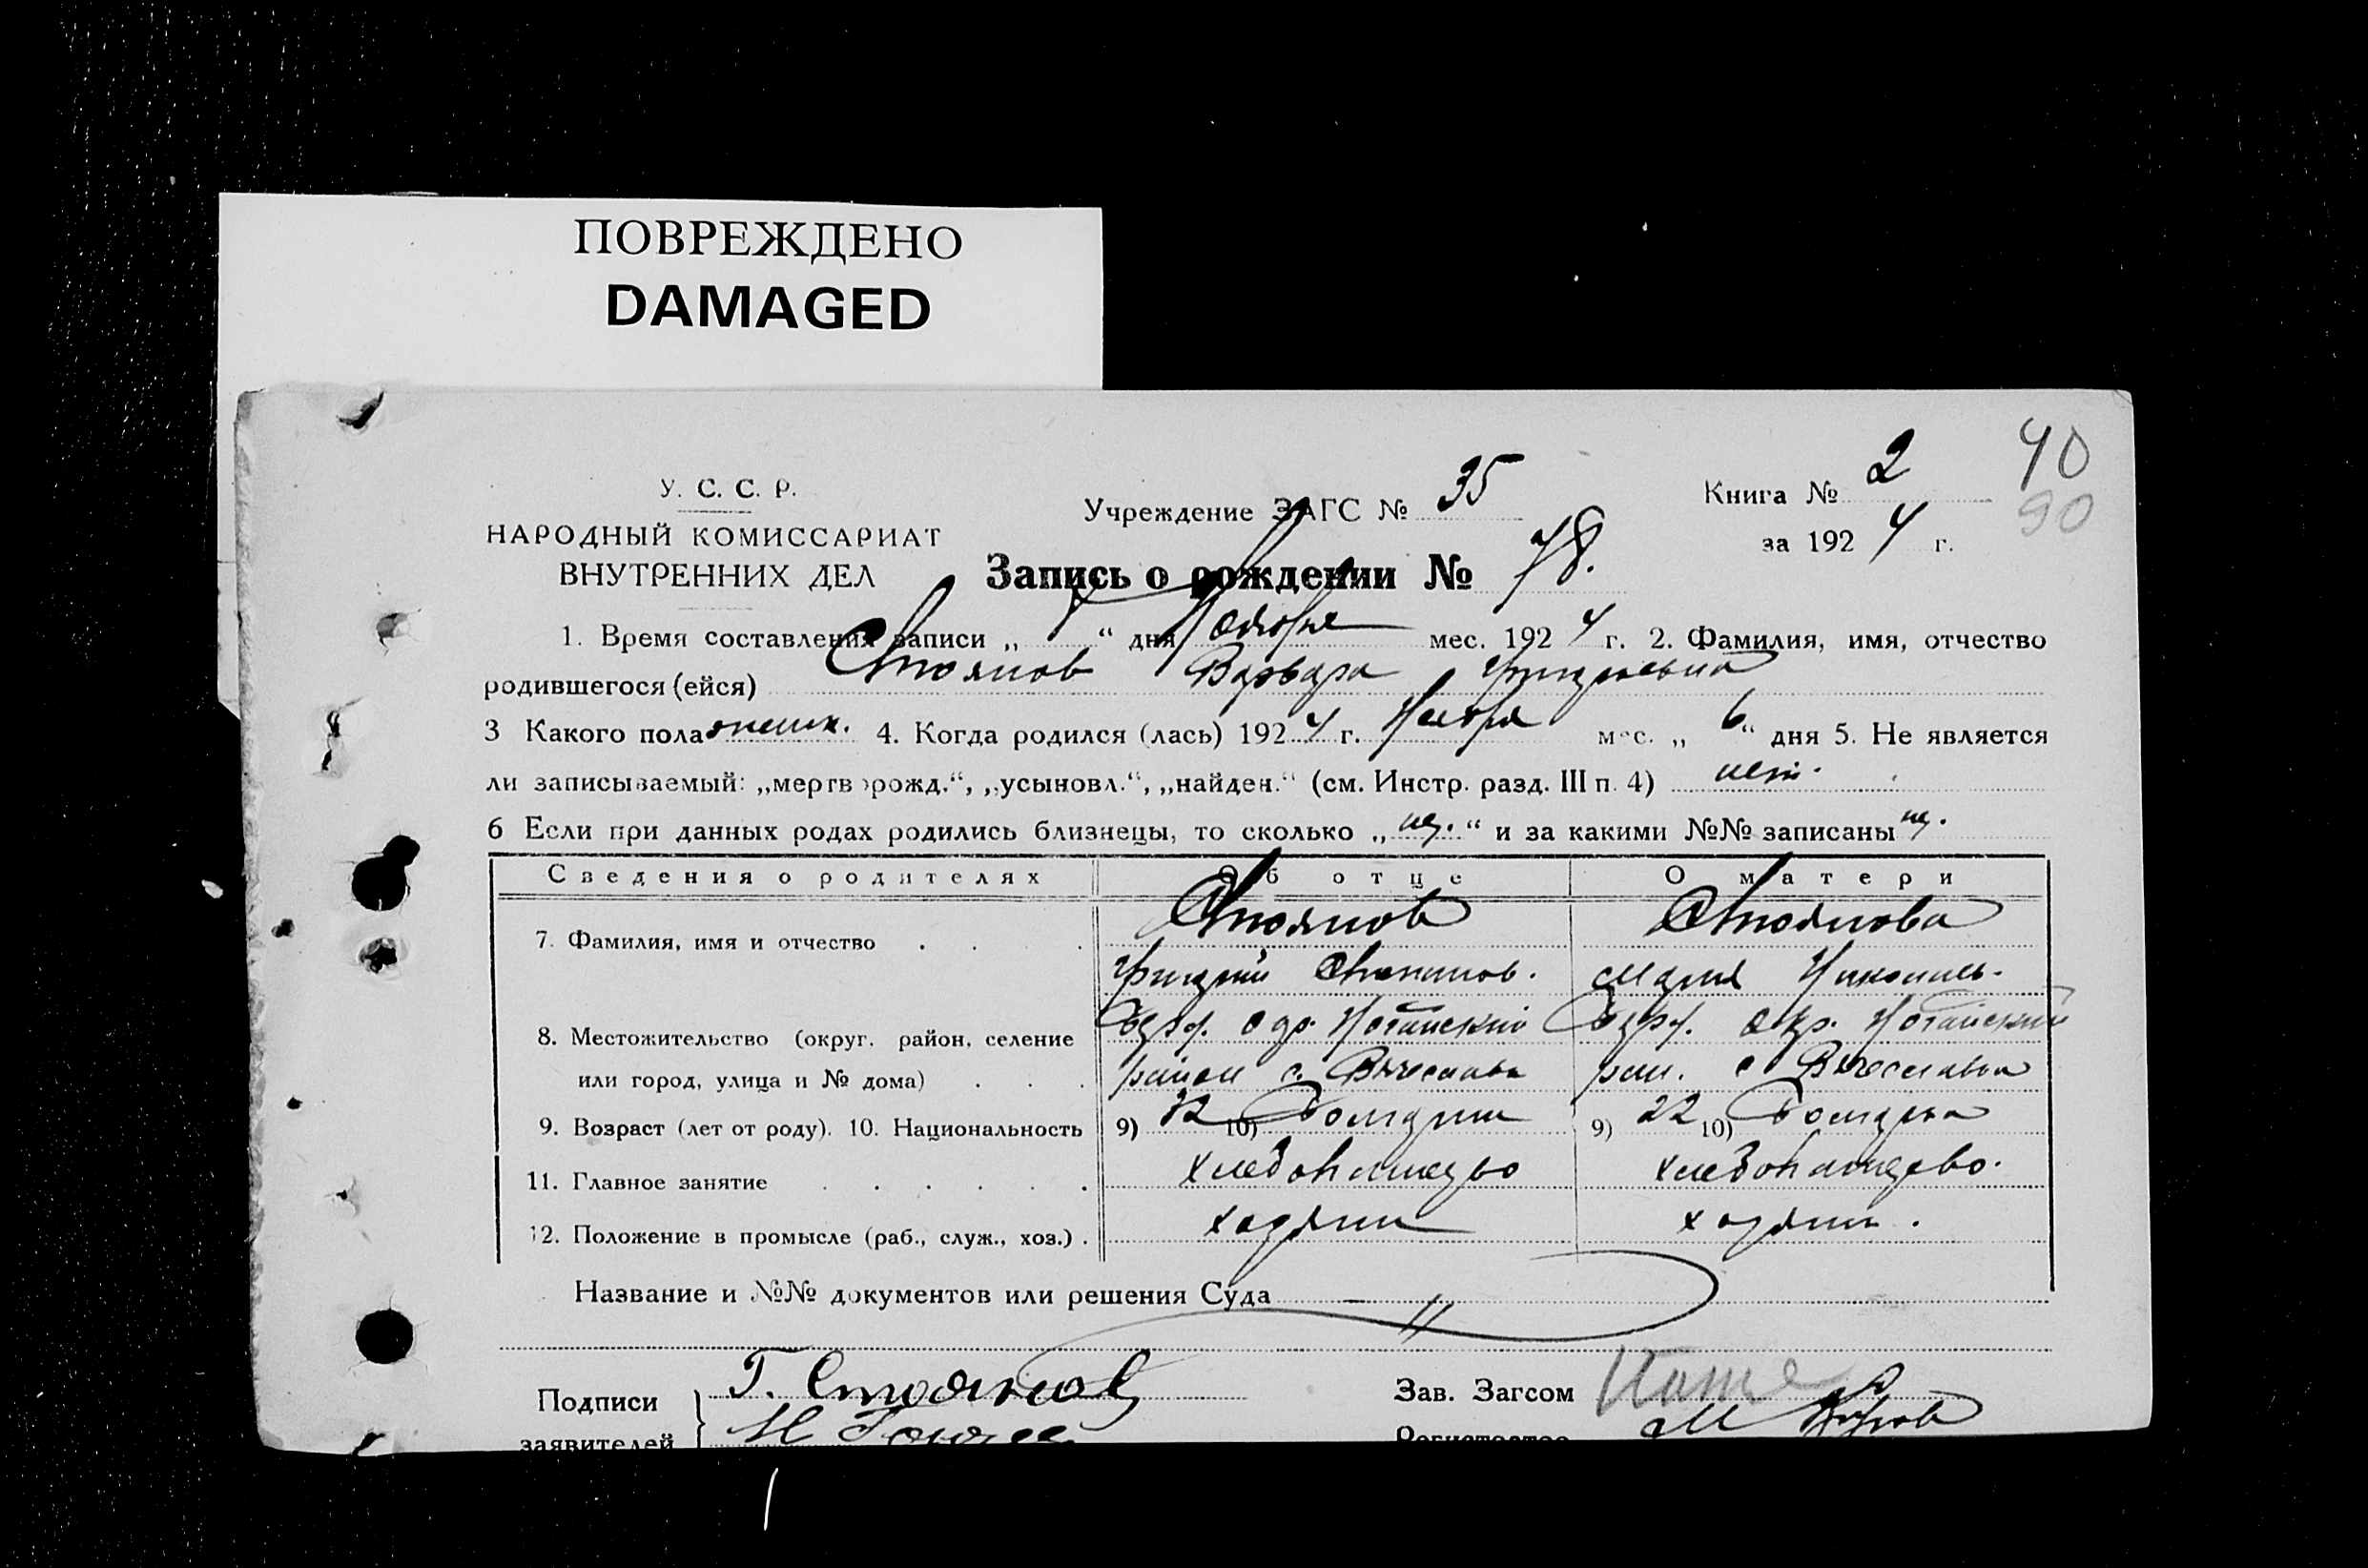 ПОВРЕЖДЕНО
DAMAGED
У. С. С. Р.
НАРОДНЫЙ КОМИССАРИАТ
ВНУТРЕННИХ ДЕЛ
Учреждение ЗАГС № 35
Книга № 2
40
90
за 1924 г.
Запись о рождении № 78.
1. Время составления записи „ 7 “ дня Ноября мес. 1924 г. 2. Фамилия, имя, отчество
родившегося (ейся) Стоянов Варвара Григорьевна
3 Какого пола женск. 4. Когда родился (лась) 1924 г. Ноября мес. „ 6 “ дня 5. Не является
ли записываемый: „мертворожд.“, „усыновл.“, „найден.“ (см. Инстр. разд. III п. 4) нет.
6 Если при данных родах родились близнецы, то сколько „ “ и за какими №№ записаны
Сведения о родителях Об отце О матери
7. Фамилия, имя и отчество Стоянов Стоянова
Григорий Мария
8. Местожительство (округ. район, селение Ногайский Ногайский
или город, улица и № дома) район с.
9. Возраст (лет от роду). 10. Национальность 9) 32 10) Болгарин 9) 22 10) Болгарка
11. Главное занятие хлебопашество хлебопашество.
12. Положение в промысле (раб., служ., хоз.) хозяин хозяин.
Название и №№ документов или решения Суда
Подписи Г. Стоянов
Зав. Загсом
заявителей
Регистратор